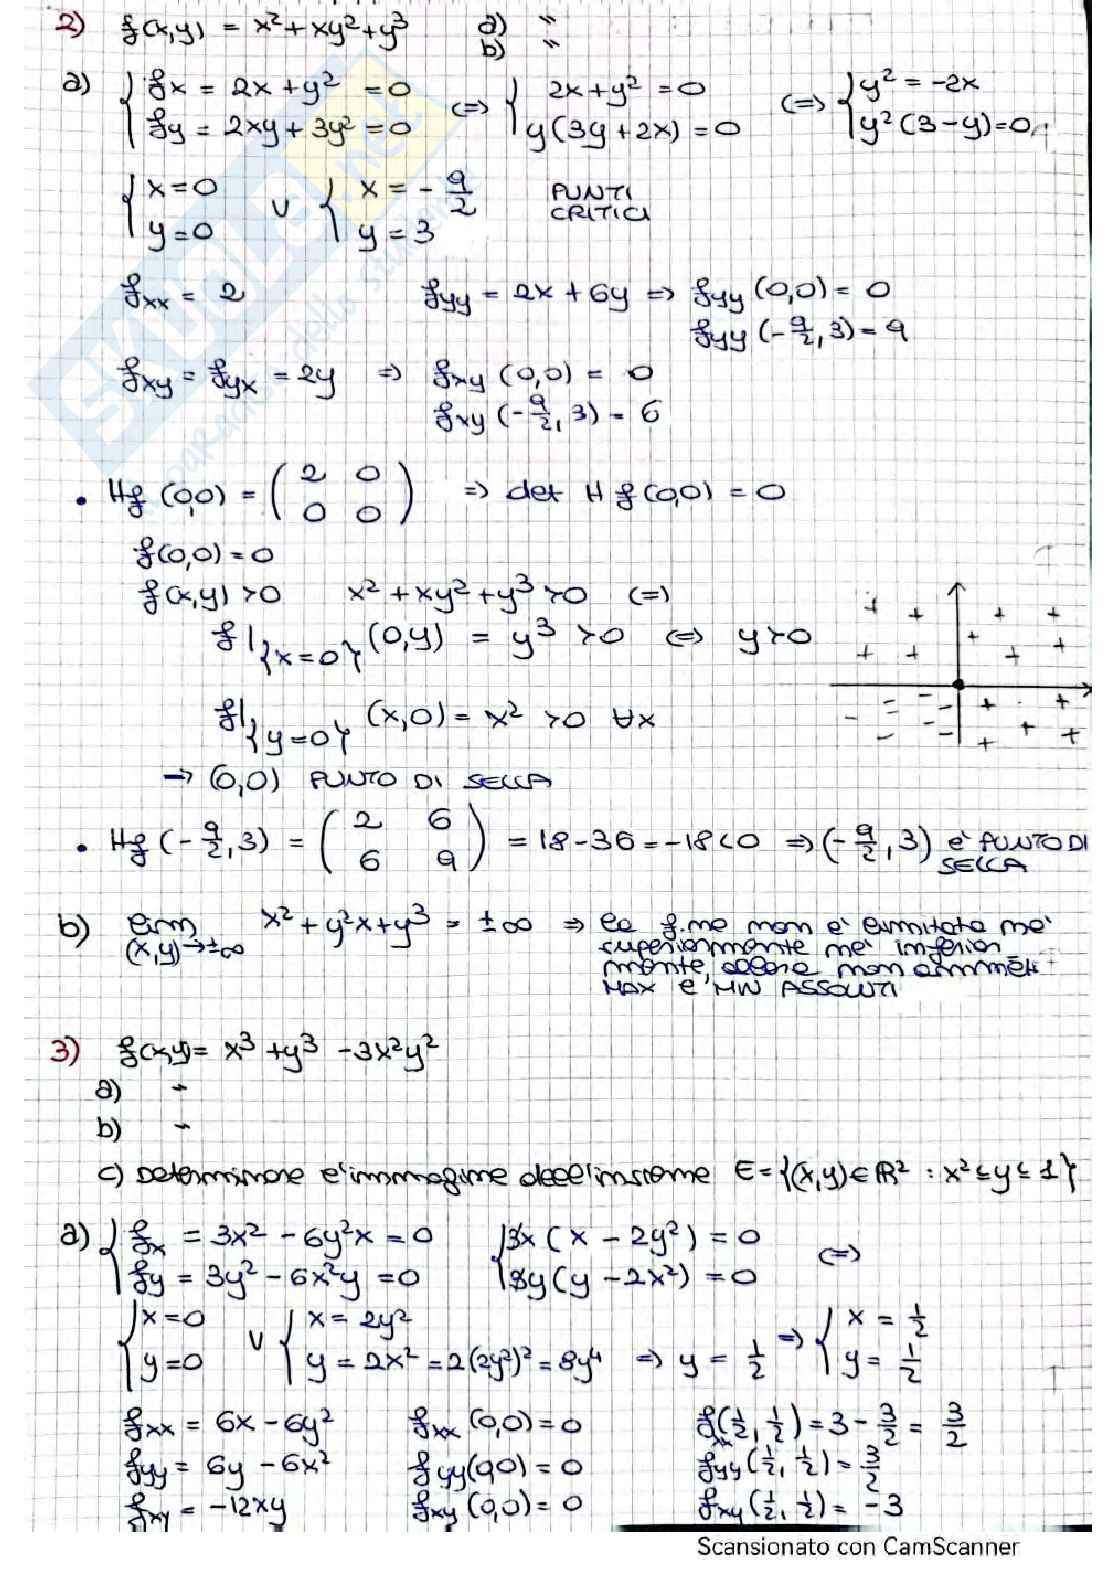 2) f(x,y) = x² + xy² + y³ a) "
b) "
a) { fx = 2x + y² = 0 <=> { 2x + y² = 0 <=> { y² = -2x
fy = 2xy + 3y² = 0 y(3y + 2x) = 0 y²(3 - y) = 0
{ x = 0 ∨ { x = - 9/2 PUNTI CRITICI
y = 0 y = 3
fxx = 2 fyy = 2x + 6y => fyy (0,0) = 0
fyy (-9/2, 3) = 9
fxy = fyx = 2y => fxy (0,0) = 0
fxy (-9/2, 3) = 6
• Hf (0,0) = ( 2 0 ) => det H f(0,0) = 0
( 0 0 )
f(0,0) = 0
f(x,y) > 0 x² + xy² + y³ > 0 <=>
f|{x=0} (0,y) = y³ > 0 <=> y > 0
f|{y=0} (x,0) = x² > 0 ∀x
→ (0,0) PUNTO DI SELLA
• Hf (-9/2, 3) = ( 2 6 ) = 18 - 36 = -18 < 0 => (-9/2, 3) è PUNTO DI SELLA
( 6 9 )
b) lim x² + y²x + y³ = ±∞ => la f.ne non è limitata né
(x,y)→±∞ superiormente né inferior
mente, allora non ammette
MAX e MIN ASSOLUTI
3) f(x,y) = x³ + y³ - 3x²y²
a) "
b) "
c) Determinare l'immagine dell'insieme E = {(x,y) ∈ R² : x² ≤ y ≤ 1}
a) { fx = 3x² - 6y²x = 0 { 3x (x - 2y²) = 0 <=>
fy = 3y² - 6x²y = 0 3y (y - 2x²) = 0
{ x = 0 ∨ { x = 2y² => { x = 1/2
y = 0 y = 2x² = 2(2y²)² = 8y⁴ => y = 1/2 y = 1/2
fxx = 6x - 6y² fxx (0,0) = 0 fxx(1/2, 1/2) = 3 - 3/2 = 3/2
fyy = 6y - 6x² fyy(0,0) = 0 fyy (1/2, 1/2) = 3/2
fxy = -12xy fxy (0,0) = 0 fxy (1/2, 1/2) = -3
Scansionato con CamScanner